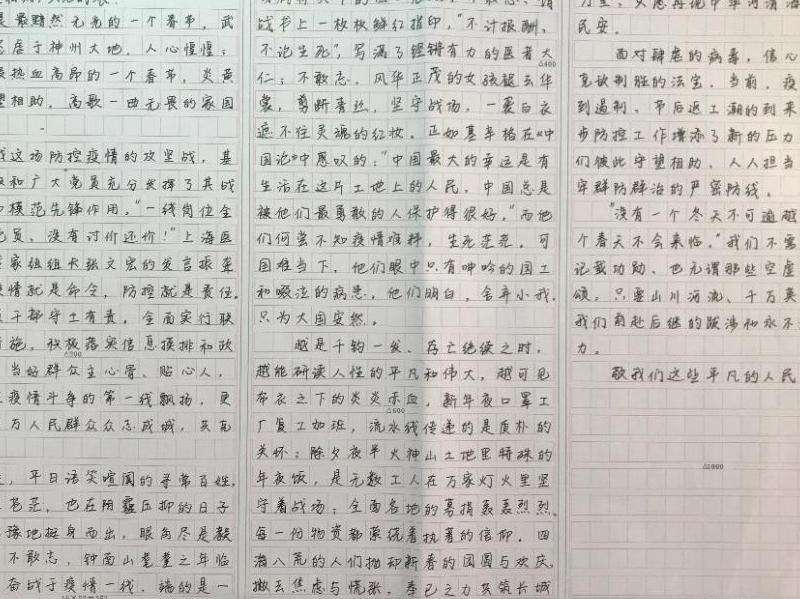 是最黯然无光的一个春节,武
居于神州大地,人心惶惶;
最热血高昂的一个春节,炎黄
望相助,高歌一曲无畏的家国
这场防控疫情的攻坚战,基
和广大党员充分发挥了其战
和模范先锋作用。"一线岗位全
党员、没有讨价还价!"上海医
家组组长张文宏的发言振聋
疫情就是命令,防控就是责任。
干部守土有责,全面实行联
施,积极落实信息摸排和政
△300
当好群众主心骨、贴心人,
疫情斗争的第一线飘扬,更
万人民群众众志成城,共克
平日语笑喧阗的寻常百姓,
苍茫,也在阴霾压抑的日子
豫地挺身而出,眼角尽是毅
不敢忘,钟南山耄耋之年临
奋战于疫情一线,端的是一
战书上一枚枚鲜红指印,"不计报酬、
不论生死",写满了铿锵有力的医者大
△400
仁;不敢忘,风华正茂的女孩褪去华
裳,剪断青丝,坚守战场,一袭白衣
遮不住灵魂的红妆。正如基辛格在《中
国论》中慨叹的:"中国最大的幸运是有
生活在这片土地上的人民,中国总是
被他们最勇敢的人保护得很好。"而他
们何尝不知疫情难料,生死茫茫,可
国难当下,他们眼中只有呻吟的国土
和啜泣的病患,他们明白,舍弃小我,
只为大国安然。
越是千钧一发、存亡绝续之时,
越能研读人性的平凡和伟大,越可见
布衣之下的炎炎赤血,新年夜口罩工
△600
厂复工加班,流水线传递的是质朴的
关怀;除夕夜半火神山土地里特殊的
年夜饭,是无数工人在万家灯火里坚
守着战场;全面各地的募捐轰轰烈烈,
每一份物资都萦绕着执著的信仰。四
海八荒的人们抛却新春的团圆与欢庆,
撇去焦虑与慌张,奉己之力共筑长城
民安。
面对肆虐的病毒,信心
克敌制胜的法宝。当前,疫
到遏制,节后返工潮的到来
步防控工作增添了新的压力
们彼此守望相助、人人担当
牢群防群治的严密防线。
"没有一个冬天不可逾越
个春天不会来临。"我们不需
记载功勋、也无谓那些空虚
颂,只要山川河流、千万英
我们前赴后继的跋涉和永不
力。
敬我们这些平凡的人民
△1000